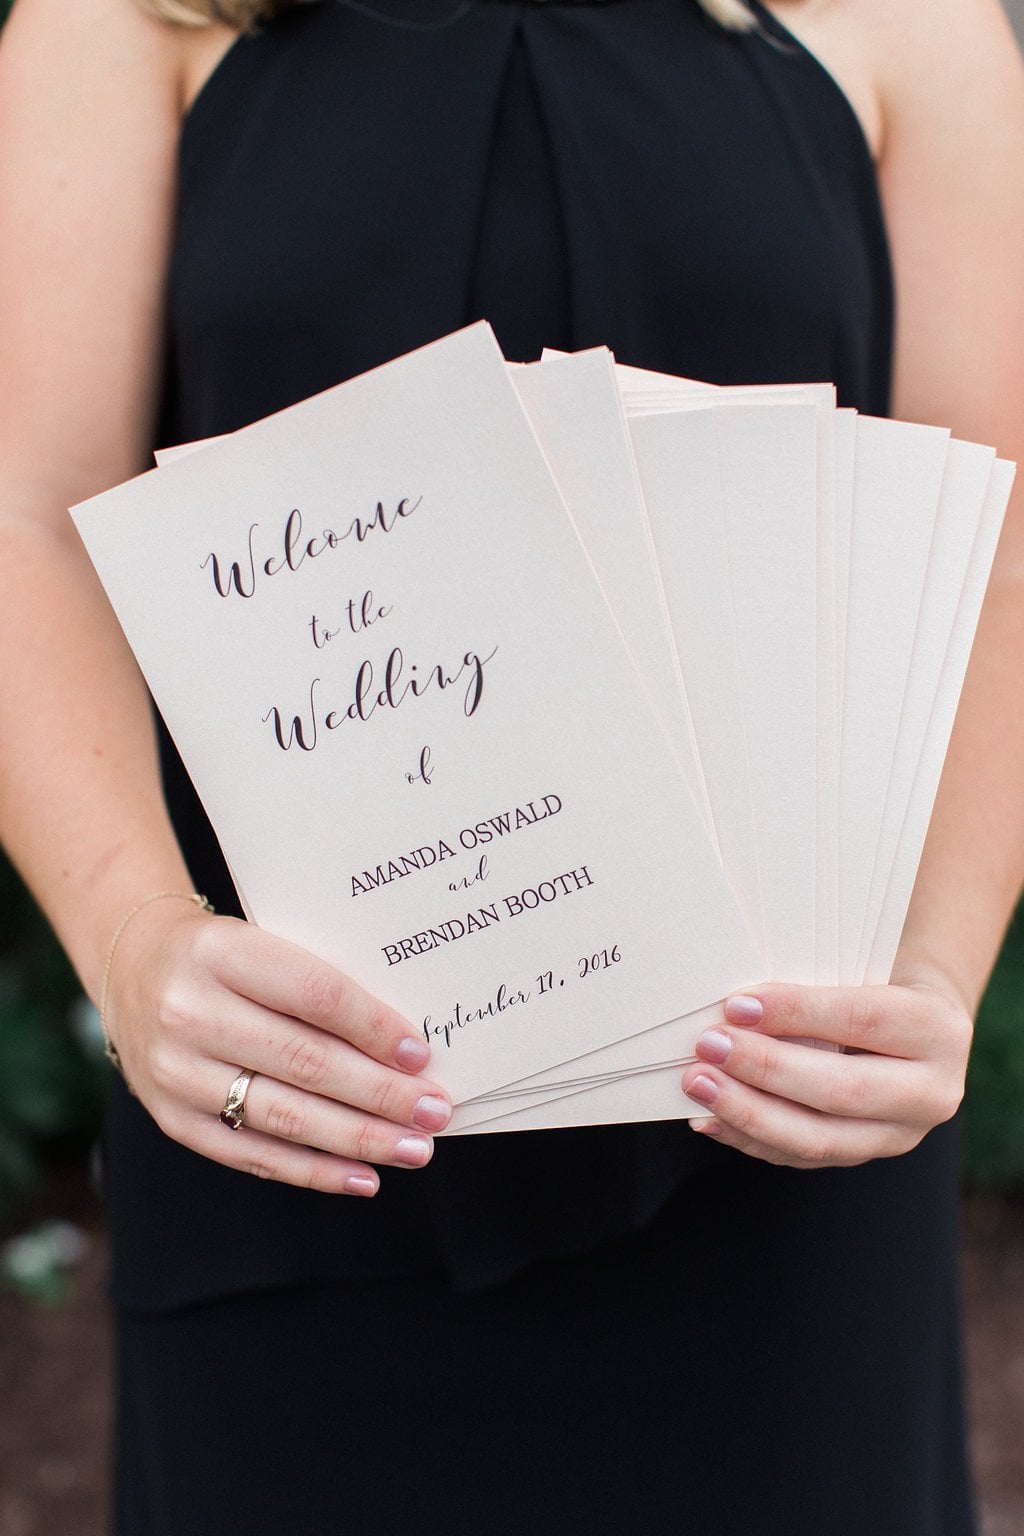 Welcome
to the
Wedding
of
AMANDA OSWALD
and
BRENDAN BOOTH
September 17, 2016